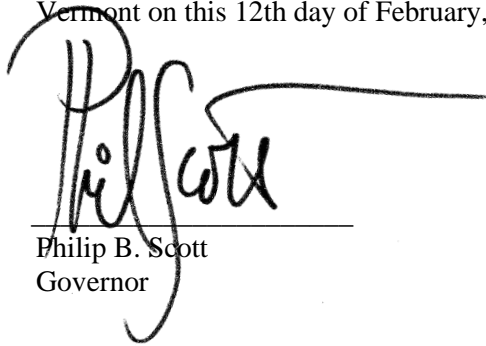 Vermont on this 12th day of February,
Phil Scott
Philip B. Scott
Governor